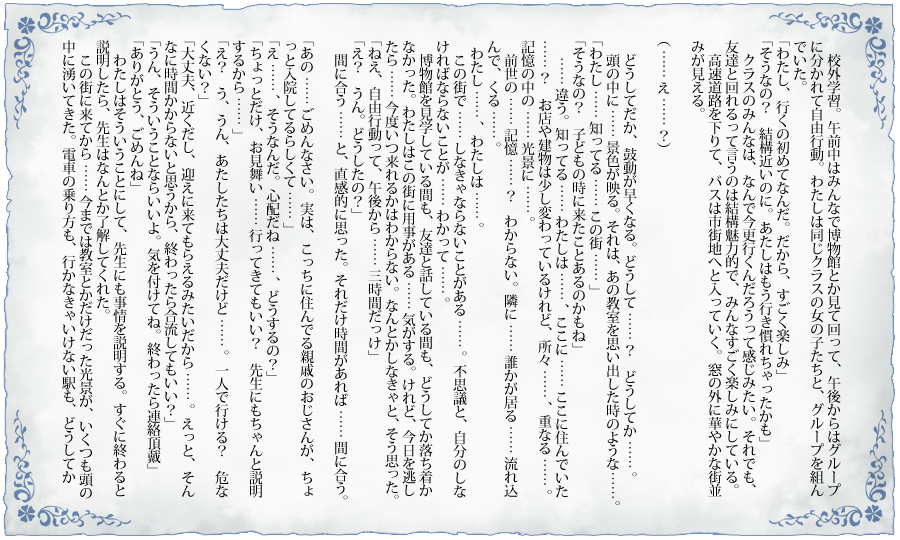 校外学習。午前中はみんなで博物館とか見て回って、午後からはグループ
に分かれて自由行動。わたしは同じクラスの女の子たちと、グループを組ん
でいた。
「わたし、行くの初めてなんだ。だから、すごく楽しみ」
「そうなの？　結構近いのに。あたしはもう行き慣れちゃったかも」
　クラスのみんなは、なんで今更行くんだろうって感じみたい。それでも、
友達と回れるって言うのは結構魅力的で、みんなすごく楽しみにしている。
　高速道路を下りて、バスは市街地へと入っていく。窓の外に華やかな街並
みが見える。
（……え……？）
　どうしてだか、鼓動が早くなる。どうして……？　どうしてか……。
　頭の中に……景色が映る。それは、あの教室を思い出した時のような……。
「わたし……知ってる……この街……」
「そうなの？　子どもの時に来たことあるのかもね」
　……違う。知ってる……わたしは……、ここに……ここに住んでいた
……？　お店や建物は少し変わっているけれど、所々……、重なる……。
記憶の中の……光景に……。
　前世の……記憶……？　わからない。隣に……誰かが居る……流れ込
んで、くる……。
　わたし……、わたしは……。
　この街で……しなきゃならないことがある……。不思議と、自分のしな
ければならないことが……わかって……。
　博物館を見学している間も、友達と話している間も、どうしてか落ち着か
なかった。わたしはこの街に用事がある……気がする。けれど、今日を逃し
たら……今度いつ来れるかはわからない。なんとかしなきゃと、そう思った。
「ねえ、自由行動って、午後から……三時間だっけ」
「え？　うん。どうしたの？」
　間に合う……と、直感的に思った。それだけ時間があれば……間に合う。
「あの……ごめんなさい。実は、こっちに住んでる親戚のおじさんが、ちょ
っと入院してるらしくて……」
「え……、そうなんだ。心配だね……、どうするの？」
「ちょっとだけ、お見舞い……行ってきてもいい？　先生にもちゃんと説明
するから……」
「え？　う、うん、あたしたちは大丈夫だけど……。一人で行ける？　危な
くない？」
「大丈夫、近くだし、迎えに来てもらえるみたいだから……。えっと、そん
なに時間かからないと思うから、終わったら合流してもいい？」
「うん、そういうことならいいよ。気を付けてね。終わったら連絡頂戴」
「ありがとう、ごめんね」
　わたしはそういうことにして、先生にも事情を説明する。すぐに終わると
説明したら、先生はなんとか了解してくれた。
　この街に来てから……今までは教室とかだけだった光景が、いくつも頭の
中に湧いてきた。電車の乗り方も、行かなきゃいけない駅も、どうしてか